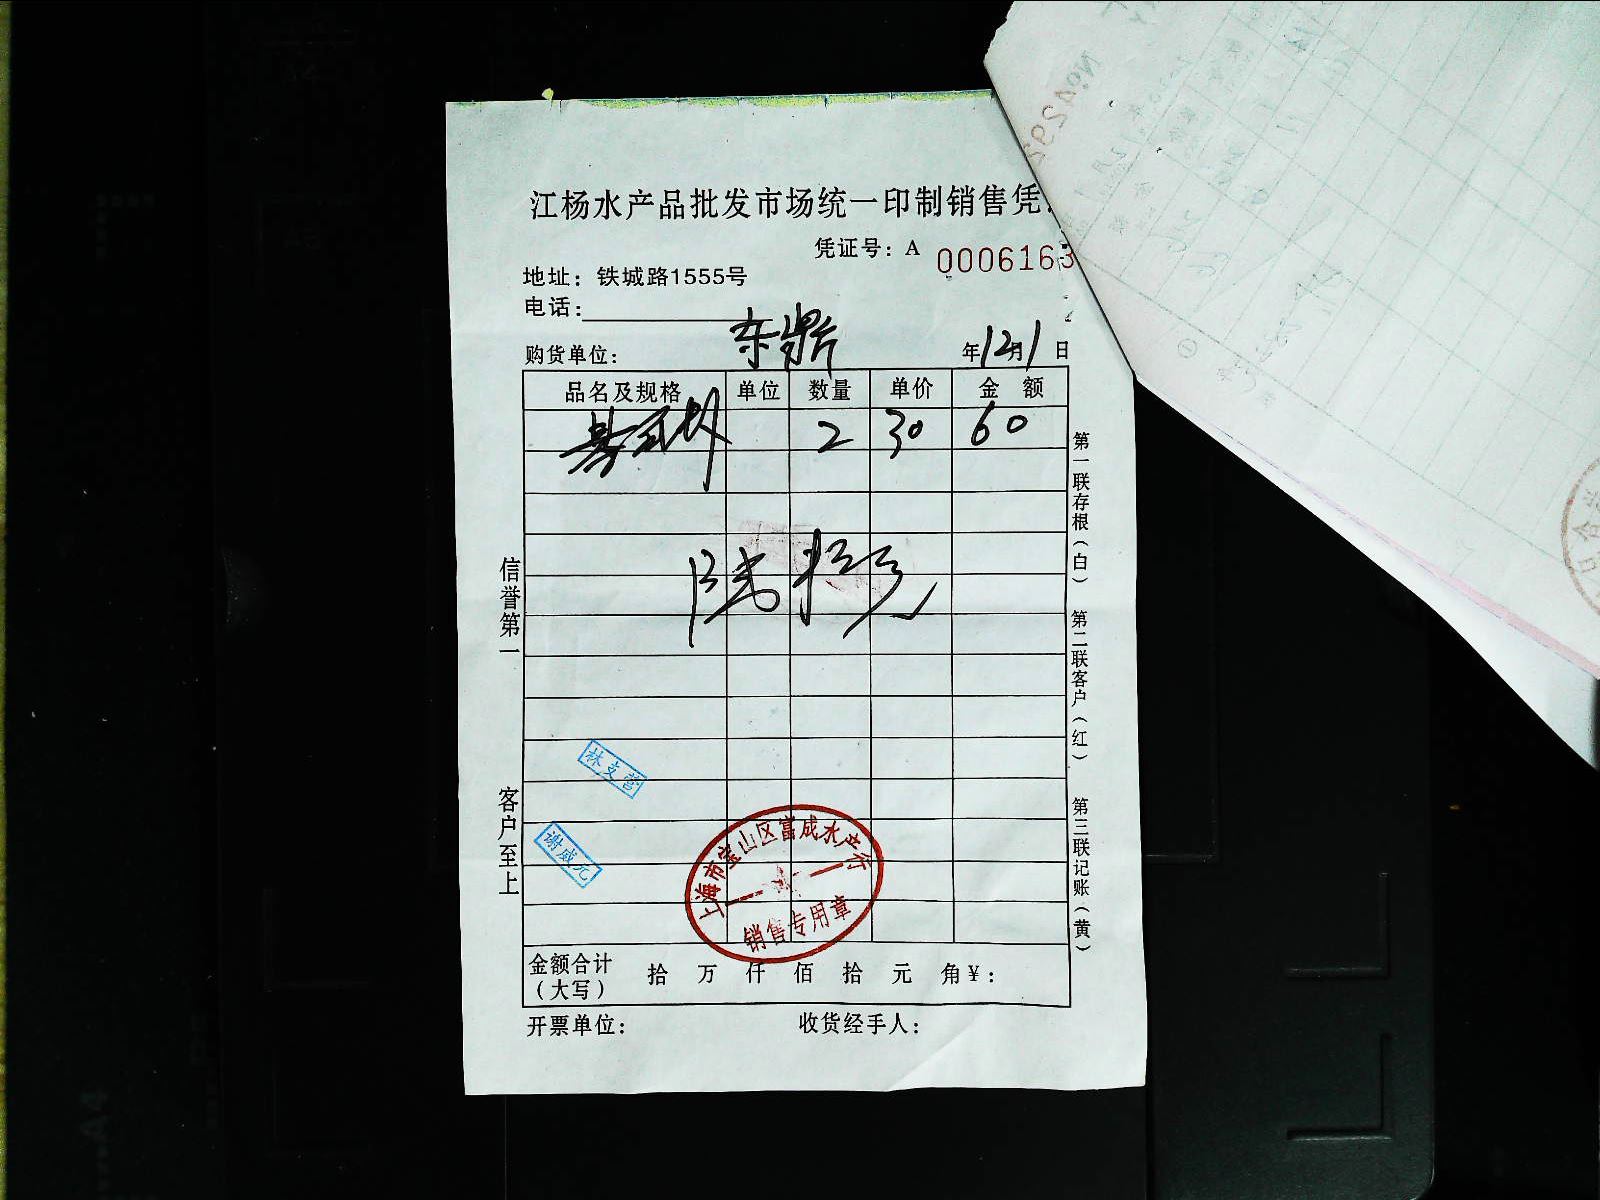 江杨水产品批发市场统一印制销售凭
凭证号：A 0006163
地址：铁城路1555号
电话：
购货单位：东鼎 年12月1日
品名及规格 单位 数量 单价 金 额
2 30 60
陆拾元
信誉第一
客户至上
第一联存根（白）
第二联客户（红）
第三联记账（黄）
林支营
谢威元
上海市宝山区富成水产行
销售专用章
金额合计（大写） 拾 万 仟 佰 拾 元 角￥：
开票单位： 收货经手人：